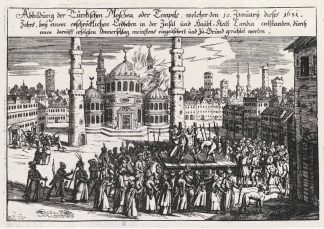 Abbildung der Türckischen Moschea, oder Tempels, welcher den 10. January dieses 1681.
Jahrs, bey einem erschröcklichen Erdbeben in der Insul und Haubt-Statt Candia entstanden, durch
einen darauff erfolgten Donnerschlag meinstens ruinirt und zu Grund gerichtet worden.